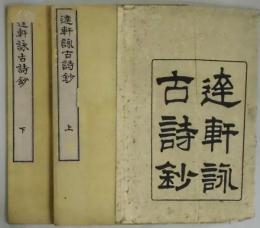 達軒詠
古詩鈔
達軒詠古詩鈔 上
達軒詠古詩鈔 下